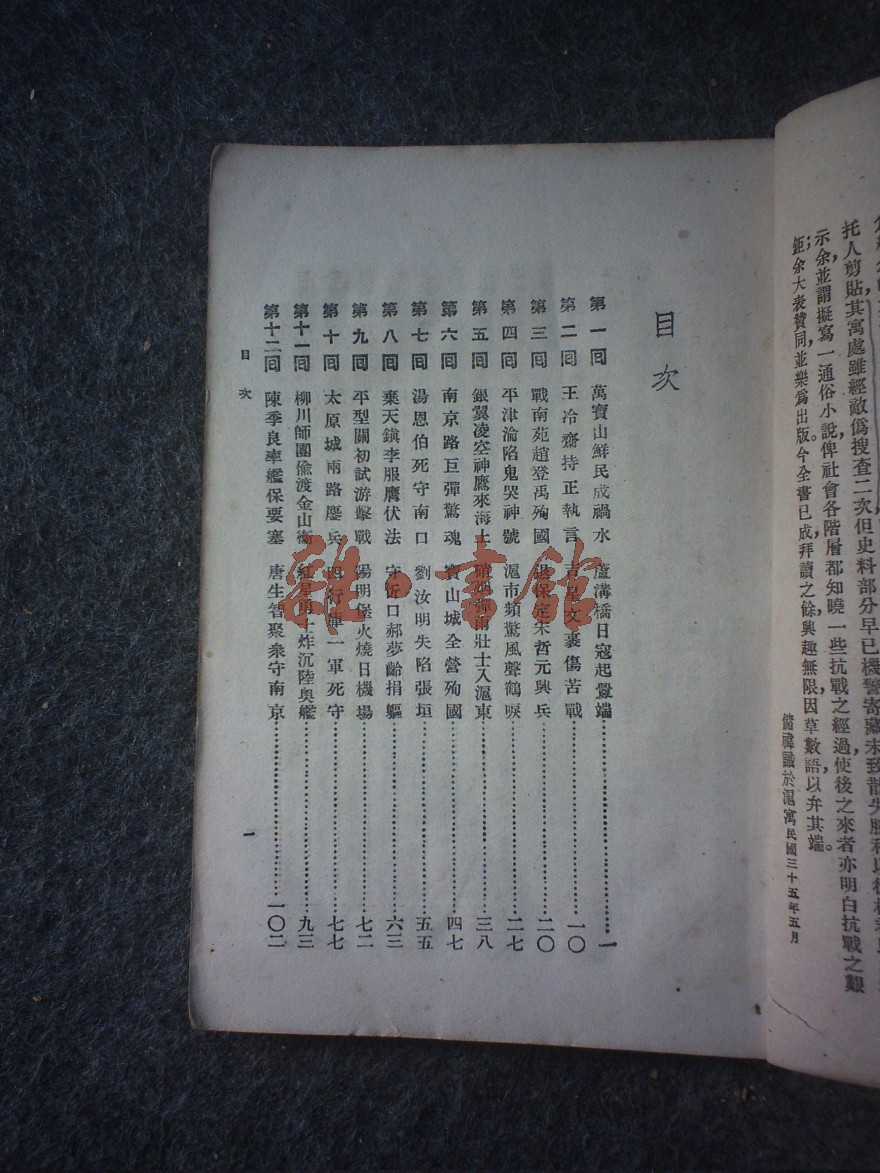 托人剪貼其寓處雖經敵僞搜查二次但史料部分早已機警寄藏未致散失勝利以後
示余並謂擬寫一通俗小說俾社會各階層都知曉一些抗戰之經過使後之來者亦明白抗戰之艱
鉅余大表贊同並樂爲出版今全書已成拜讀之餘興趣無限因草數語以弁其端。
儲禕識於滬寓民國三十五年五月
目次
第一回 萬寶山鮮民成禍水 蘆溝橋日寇起釁端 一
第二回 王冷齋持正執言 吉星文裹傷苦戰 一〇
第三回 戰南苑趙登禹殉國 退保定宋哲元興兵 二〇
第四回 平津淪陷鬼哭神號 滬市頻驚風聲鶴唳 二七
第五回 銀翼凌空神鷹來海上 硝烟彈雨壯士入滬東 三八
第六回 南京路巨彈驚魂 寶山城全營殉國 四七
第七回 湯恩伯死守南口 劉汝明失陷張垣 五五
第八回 棄天鎮李服膺伏法 守忻口郝夢齡捐軀 六三
第九回 平型關初試游擊戰 陽明堡火燒日機場 七二
第十回 太原城兩路鏖兵 四行庫一軍死守 七七
第十一回 柳川師團偷渡金山衛 紅星勇士炸沉陸奥艦 九三
第十二回 陳季良率艦保要塞 唐生智聚衆守南京 一〇二
目次
一
雜·書館